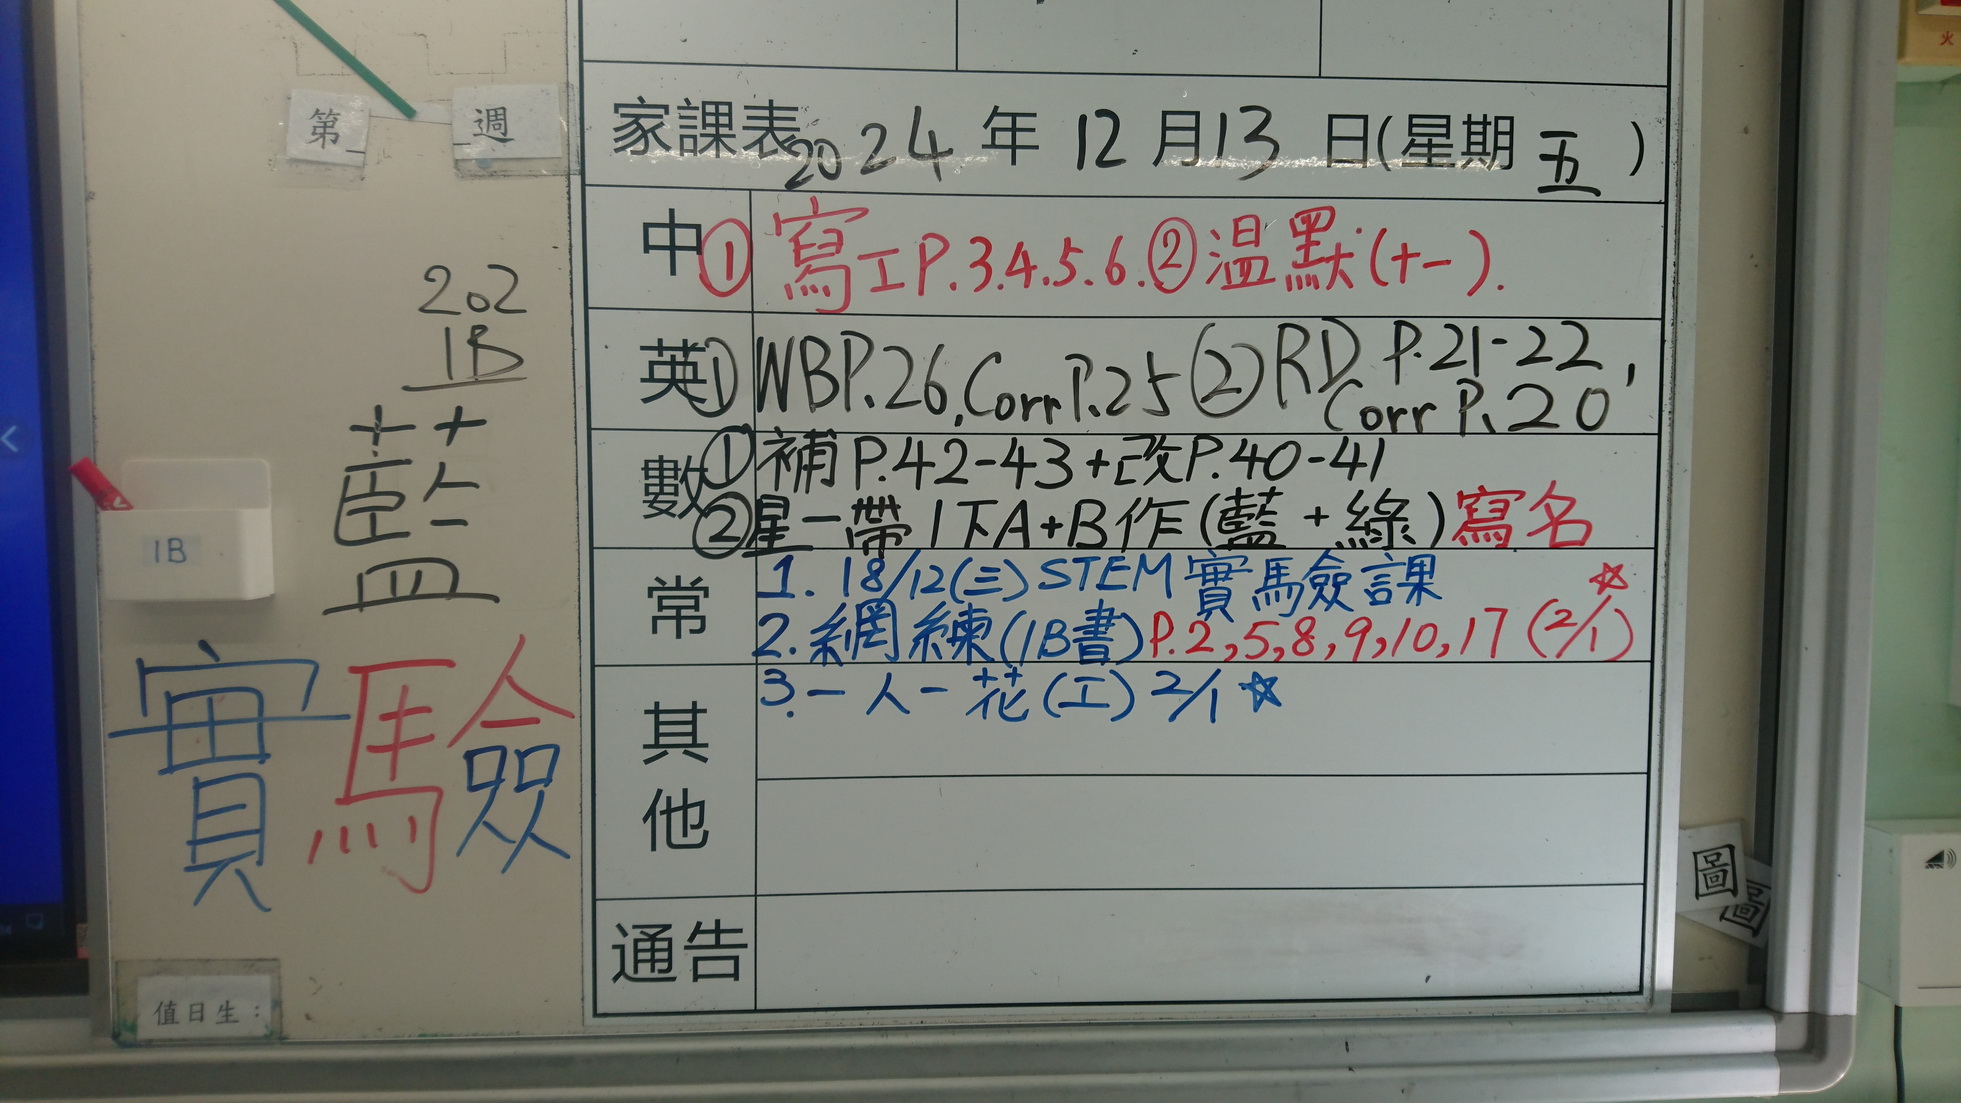 第_週
202
1B
藍
實驗
1B
值日生：
家課表 2024 年 12 月 13 日(星期 五 )
中 ① 寫工P.3.4.5.6. ② 温默(十一).
英 ① WB P.26, Corr P.25 ② RD P.21-22,
Corr P.20
數 ① 補P.42-43+改P.40-41
② 星一帶1下A+B作(藍+綠)寫名
常 1. 18/12(三) STEM 實驗課
2. 網練(1B書) P.2,5,8,9,10,17 (2/1) ☆
其他 3. 一人一花(工) 2/1 ☆
通告
圖
圖
火